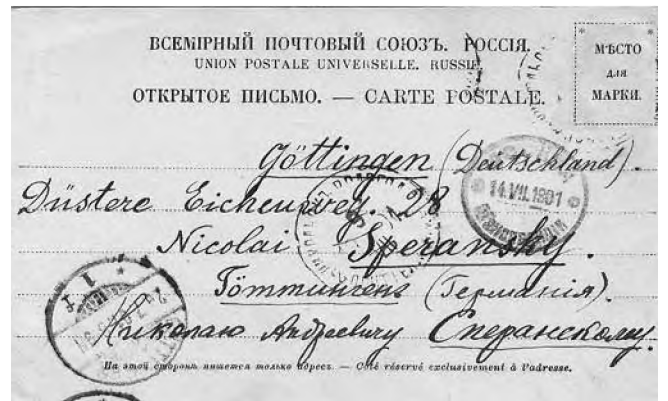 ВСЕМІРНЫЙ ПОЧТОВЫЙ СОЮЗЪ. РОССІЯ.
UNION POSTALE UNIVERSELLE. RUSSIE.
МѢСТО
для
МАРКИ.
ОТКРЫТОЕ ПИСЬМО. — CARTE POSTALE.
Göttingen (Deutschland).
Düstere Eichenweg. 28
14.VII.1901
Nicolai Speransky.
Гёттингенъ (Германія).
Николаю Андреевичу Сперанскому.
На этой сторонѣ пишется только адресъ. — Côté réservé exclusivement à l'adresse.